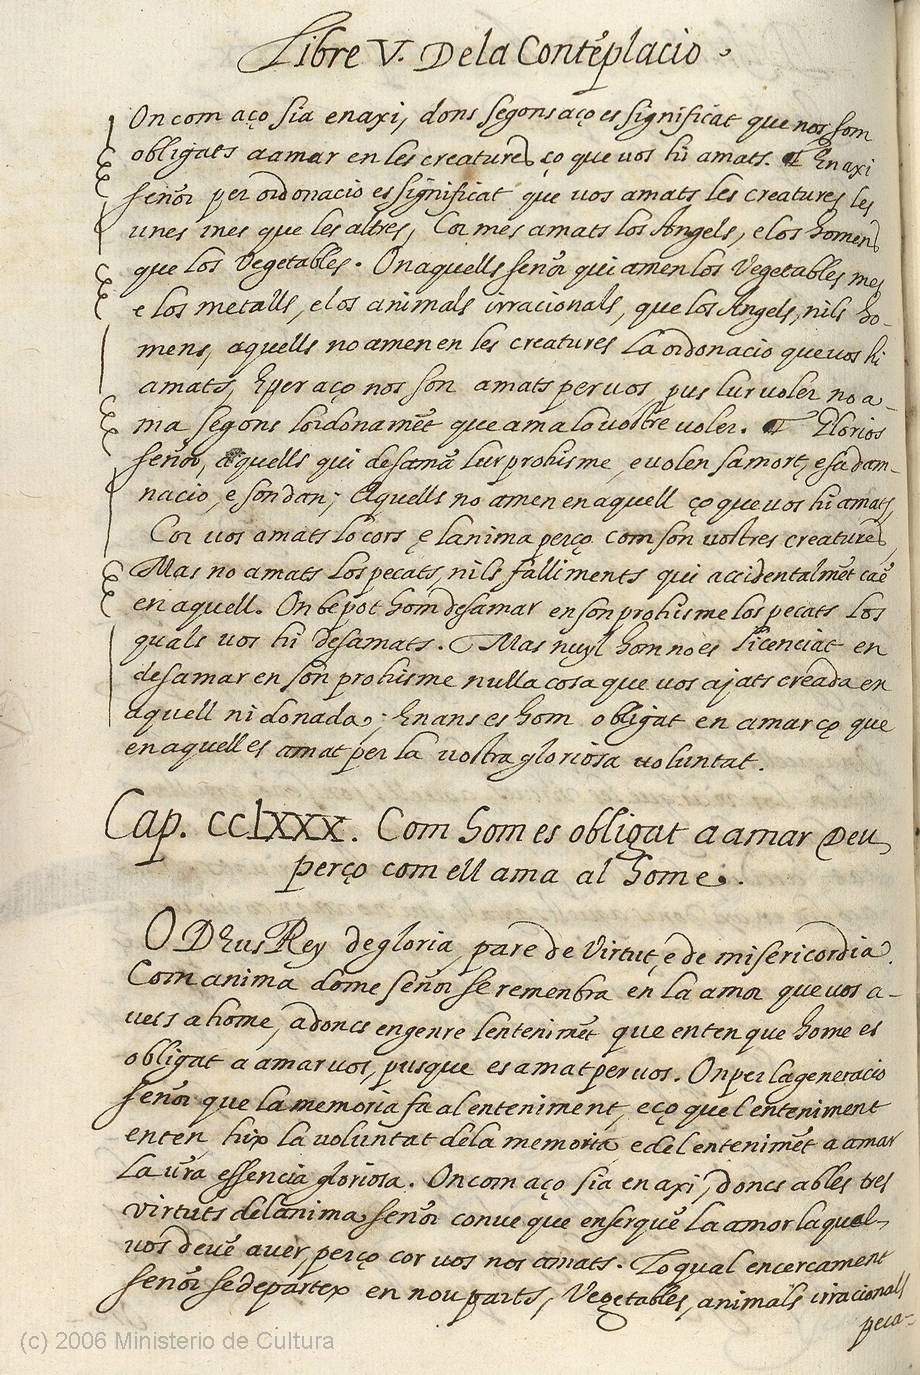 Libre V. Dela Contẽplacio
On com aço sia enaxi, dons segons aço es significat que nos som
obligats a amar en les creatures ço que vos hi amats. ¶ Enaxi
señor per ordonacio es significat que vos amats les creatures les
unes mes que les altres, Cor mes amats los Angels, e los homens
que los Vegetables. On aquells señor qui amen los Vegetables mes
e los metalls, e los animals irracionals, que los Angels, nils ho-
mens, aquells no amen en les creatures la ordonacio que vos hi
amats, E per aço nos son amats per vos, pus lur voler no a-
ma segons lordonamẽt que ama lo vostre voler. ¶ Glorios
señor, aquells qui desamã lur prohisme, e volen sa mort, e sa dam-
nacio, e son dan; Aquells no amen en aquell ço que vos hi amats,
Cor vos amats lo cors e lanima perço com son vostres creatures,
Mas no amats los pecats, nils falliments qui accidentalmẽt caẽ
en aquell. On be pot hom desamar en son prohisme los pecats los
quals vos hi desamats. Mas nuyl hom no es licenciat en
desamar en son prohisme nulla cosa que vos ajats creada en
aquell ni donada; Enans es hom obligat en amar ço que
en aquell es amat per la vostra gloriosa voluntat.
Cap. cclxxx. Com hom es obligat a amar Deu,
perço com ell ama al home.
O DEus Rey de gloria, pare de Virtut, e de misericordia.
Com anima dome señor se remenbra en la amor que vos a-
vets a home, adoncs engenre lentenimẽt que enten que home es
obligat a amar vos, pusque es amat per vos. On per la generacio
señor que la memoria fa al enteniment, e ço que l enteniment
enten, hix la voluntat dela memoria e del entenimẽt a amar
la vr̃a essencia gloriosa. On com aço sia en axi, doncs ab les tres
virtuts delanima señor conve que enserquẽ la amor la qual
vos devẽ aver, perço cor vos nos amats. Lo qual encercament
señor se departex en nou parts, Vegetables, animals irracionals
peca-
(c) 2006 Ministerio de Cultura